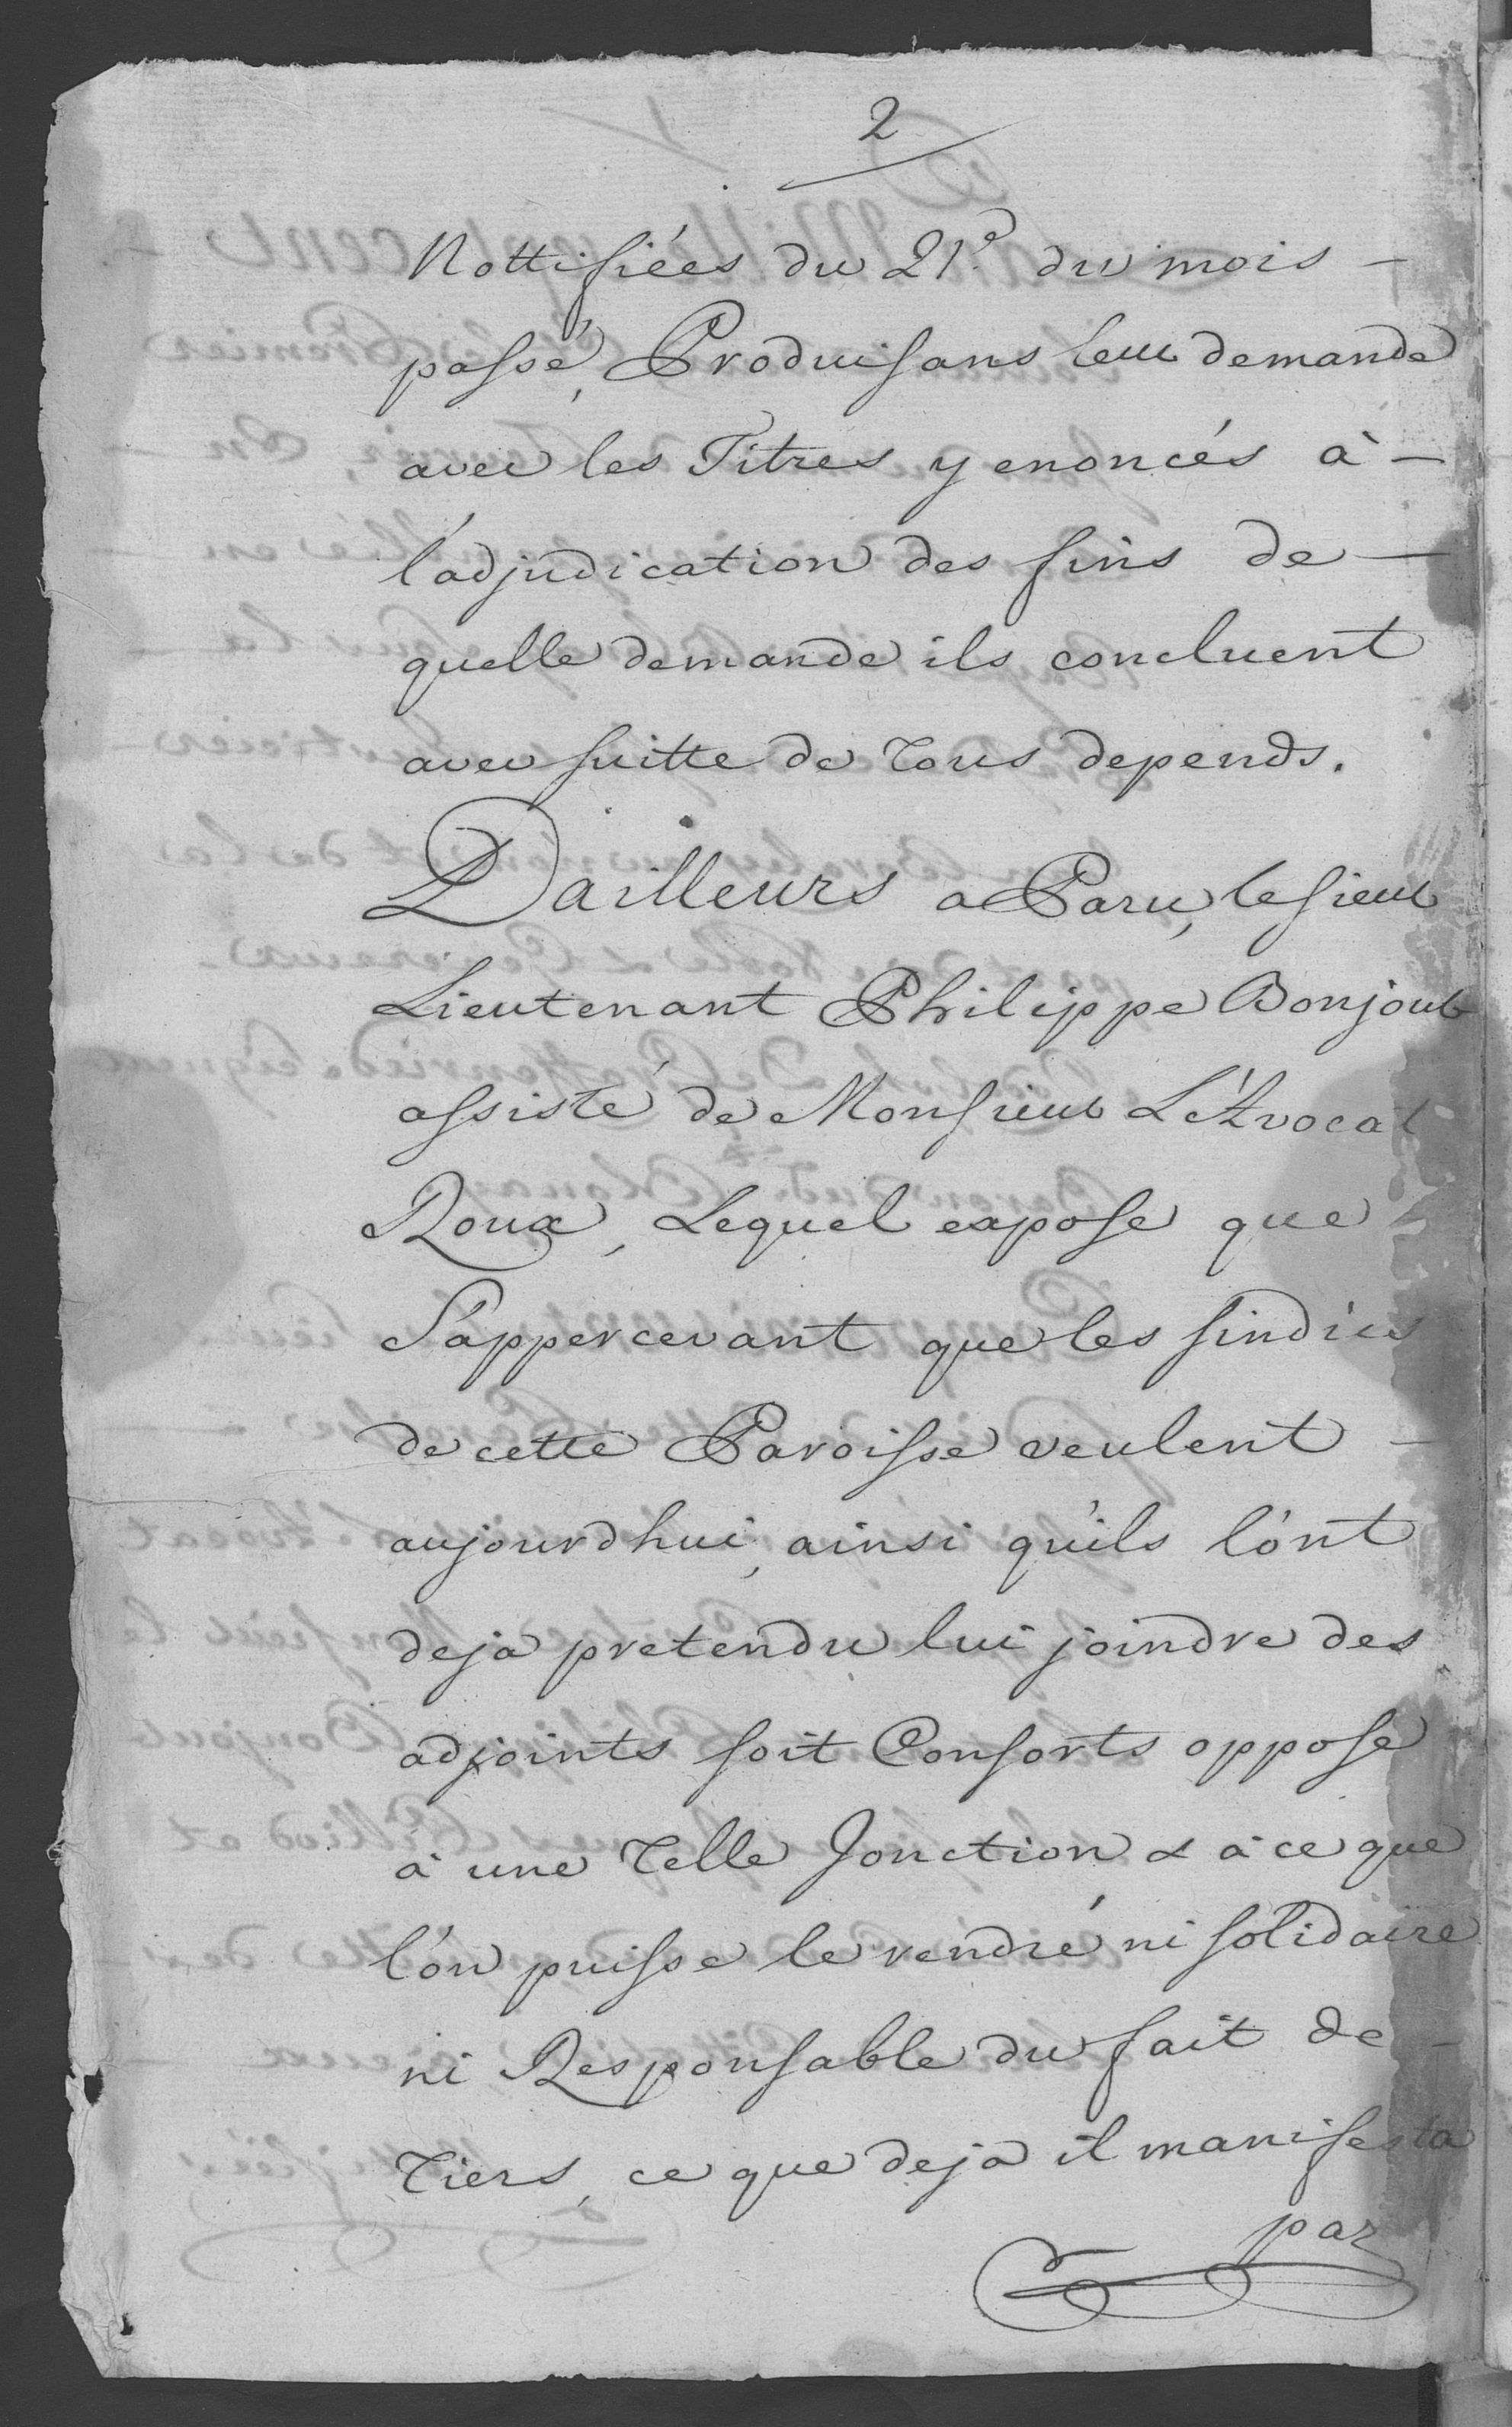 2
Nottifiées du 21e. du mois -
passé, Produisans leur demande
avec les Titres y enoncés à -
l'adjudication des fins de -
quelle demande ils concluent
avec suitte de tous depends.
Dailleurs a Paru, le sieur
Lieutenant Philippe Bonjour
assisté de Monsieur L'Avocat
Roux, Lequel expose que
S'appercevant que les sindics
de cette Paroisse veulent -
aujourdhui, ainsi qu'ils l'ont
deja pretendu lui joindre des
adjoints soit Consorts oppose
à une telle Jonction & à ce que
l'on puisse le rendre ni solidaire
ni Responsable du fait de -
tiers, ce que deja il manifesta
par